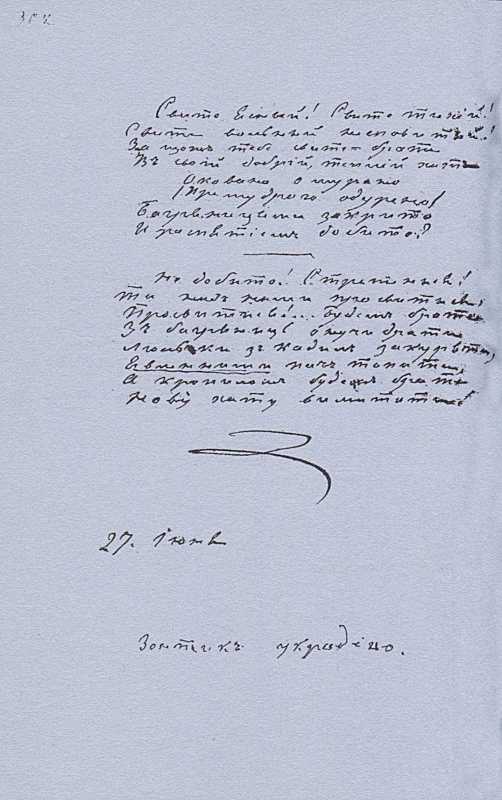 Свите Ясный! Свите тихій!
Свите вольный несповитый!
За щожъ тебе свите-брате
Въ своій добрій, теплій хати
Оковано омурано
(Премудрого одурено)
Багряницями закрито
И роспятіемъ добито?
Не добито! Стрепенися!
Та надъ нами просвитися,
Просвитися!... Будемъ брате
Зъ багряниць онучи драти
Люльки зъ кадилъ закуряти,
Явленними пичъ топити,
А кропиломъ будемъ брате
Нову хату вимитати!
27. Іюня
Зонтикъ украдено.